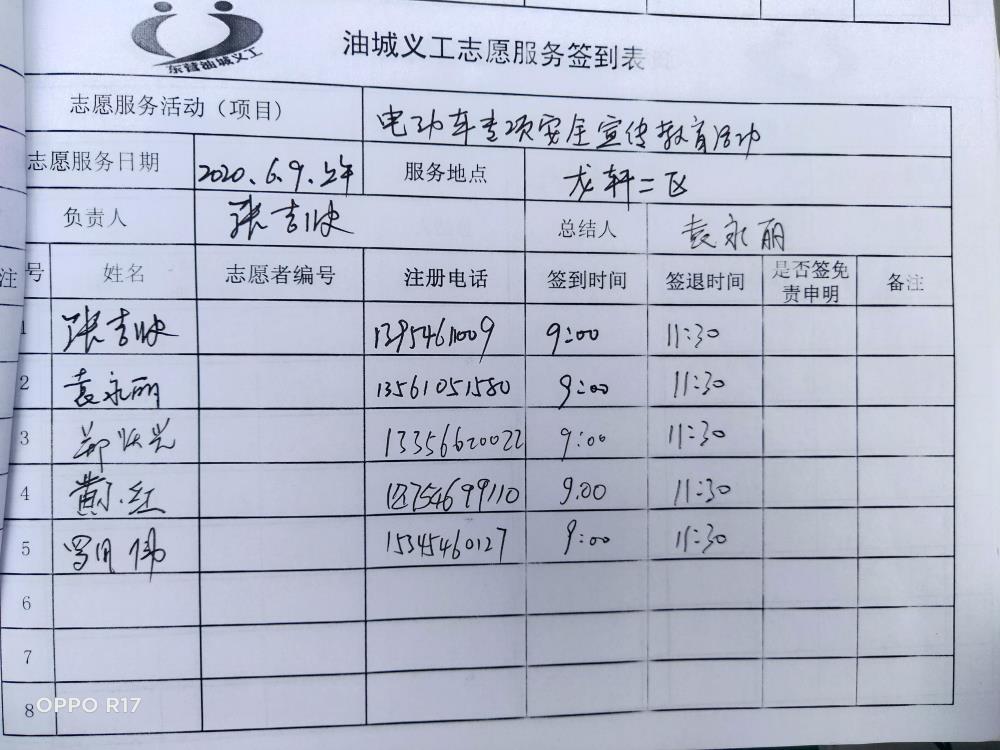 东营油城义工
油城义工志愿服务签到表
志愿服务活动（项目） 电动车专项安全宣传教育活动
志愿服务日期 2020.6.9.上午 服务地点 龙轩二区
负责人 张吉 总结人 袁永丽
注 号 姓名 志愿者编号 注册电话 签到时间 签退时间 是否签免责申明 备注
1 张吉 9:00 11:30
2 袁永丽 13561051580 9:00 11:30
3 郑 13356620022 9:00 11:30
4 黄小红 9:00 11:30
5 伟 15345460127 9:00 11:30
6
7
8
OPPO R17